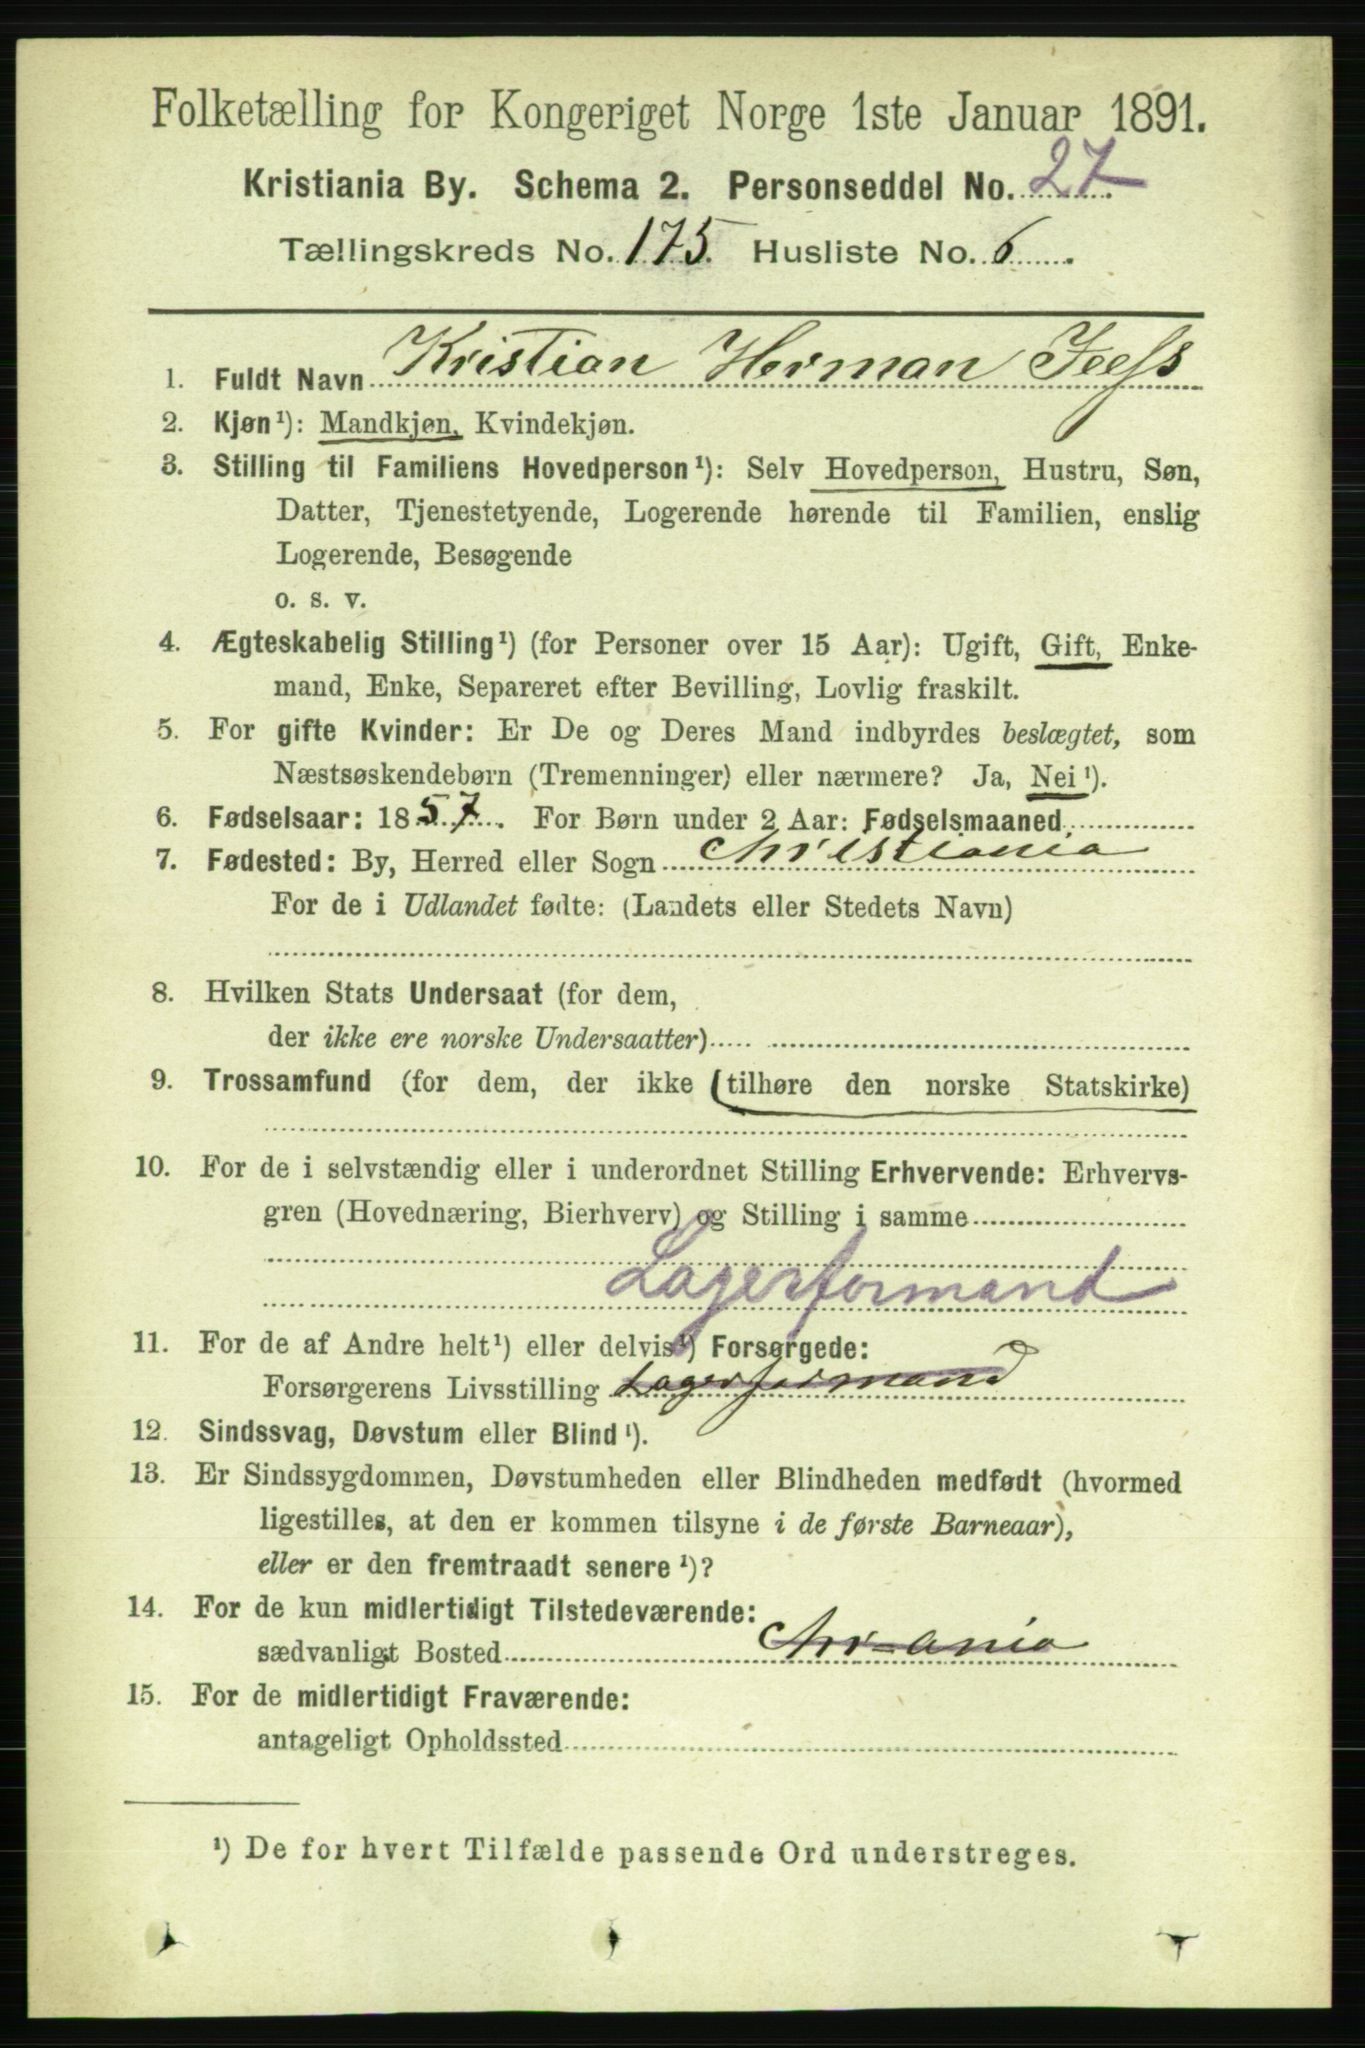 Folketælling for Kongeriget Norge 1ste Januar 1891.
Kristiania By. Schema 2. Personseddel No. 27.
Tællingskreds No. 175. Husliste No. 6.
1. Fuldt Navn Kristian Herman
2. Kjøn¹): Mandkjøn, Kvindekjøn.
3. Stilling til Familiens Hovedperson¹): Selv Hovedperson, Hustru, Søn,
Datter, Tjenestetyende, Logerende hørende til Familien, enslig
Logerende, Besøgende
o. s. v.
4. Ægteskabelig Stilling¹) (for Personer over 15 Aar): Ugift, Gift, Enke-
mand, Enke, Separeret efter Bevilling, Lovlig fraskilt.
5. For gifte Kvinder: Er De og Deres Mand indbyrdes beslægtet, som
Næstsøskendebørn (Tremenninger) eller nærmere? Ja, Nei¹).
6. Fødselsaar: 1857. For Børn under 2 Aar: Fødselsmaaned
7. Fødested: By, Herred eller Sogn Christiania
For de i Udlandet fødte: (Landets eller Stedets Navn)
8. Hvilken Stats Undersaat (for dem,
der ikke ere norske Undersaatter)
9. Trossamfund (for dem, der ikke (tilhøre den norske Statskirke)
10. For de i selvstændig eller i underordnet Stilling Erhvervende: Erhvervs-
gren (Hovednæring, Bierhverv) og Stilling i samme
Lagerformand
11. For de af Andre helt¹) eller delvis¹) Forsørgede:
Forsørgerens Livsstilling Lagerformand
12. Sindssvag, Døvstum eller Blind¹).
13. Er Sindssygdommen, Døvstumheden eller Blindheden medfødt (hvormed
ligestilles, at den er kommen tilsyne i de første Barneaar),
eller er den fremtraadt senere¹)?
14. For de kun midlertidigt Tilstedeværende:
sædvanligt Bosted Chr-ania
15. For de midlertidigt Fraværende:
antageligt Opholdssted
¹) De for hvert Tilfælde passende Ord understreges.